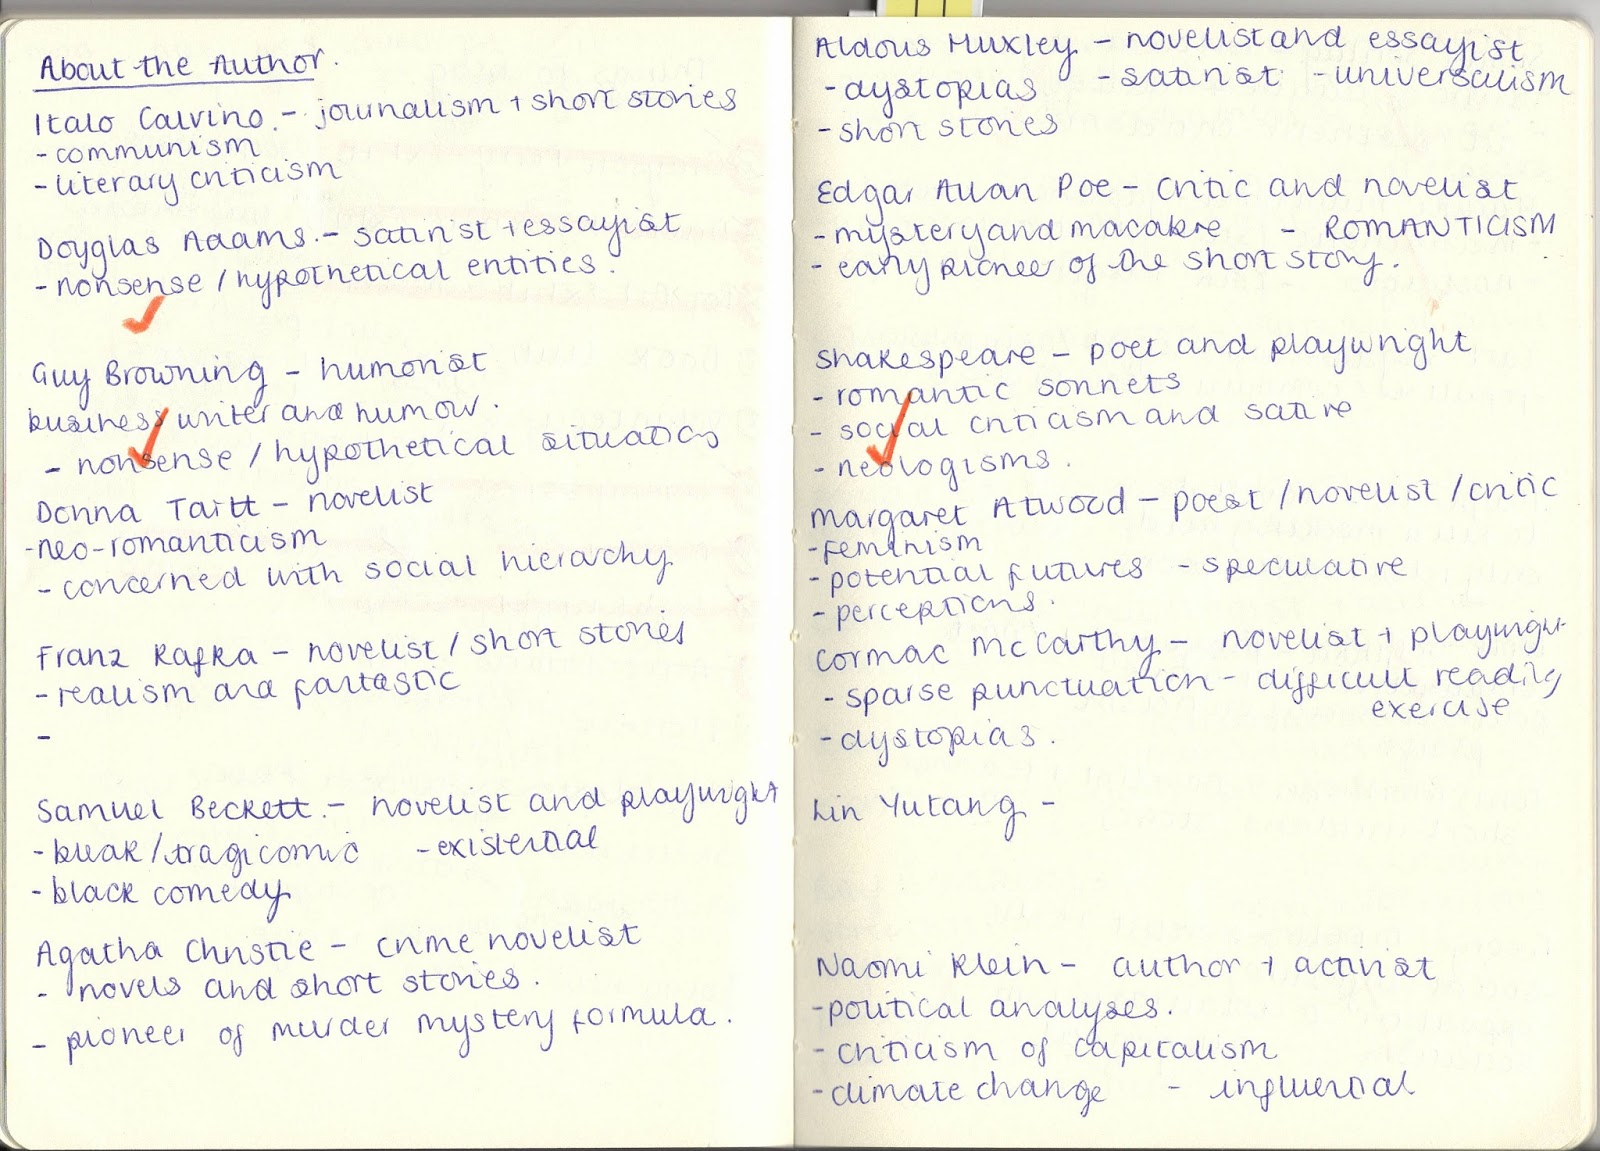 About the Author.
Italo Calvino. - journalism + short stories
- communism
- literary criticism
Doyglas Adams. - satirist + essayist
- nonsense / hypothetical entities.
Guy Browning - humorist
business writer and humour.
- nonsense / hypothetical situations
Donna Tartt - novelist
- neo-romanticism
- concerned with social hierarchy
Franz Kafka - novelist / short stories
- realism and fantastic
-
Samuel Beckett. - novelist and playwright
- bleak / tragicomic - existential
- black comedy
Agatha Christie - crime novelist
- novels and short stories.
- pioneer of murder mystery formula.
Aldous Huxley - novelist and essayist
- dystopias - satirist - universalism
- short stories
Edgar Allan Poe - critic and novelist
- mystery and macabre - ROMANTICISM
- early pioneer of the short story.
Shakespeare - poet and playwright
- romantic sonnets
- social criticism and satire
- neologisms.
Margaret Atwood - poest / novelist / critic
- feminism
- potential futures - speculative
- perceptions.
Cormac McCarthy - novelist +
- sparse punctuation - difficult reading
exercise
- dystopias.
Lin Yutang -
Naomi Klein - author + activist
- political analyses.
- criticism of capitalism
- climate change - influential